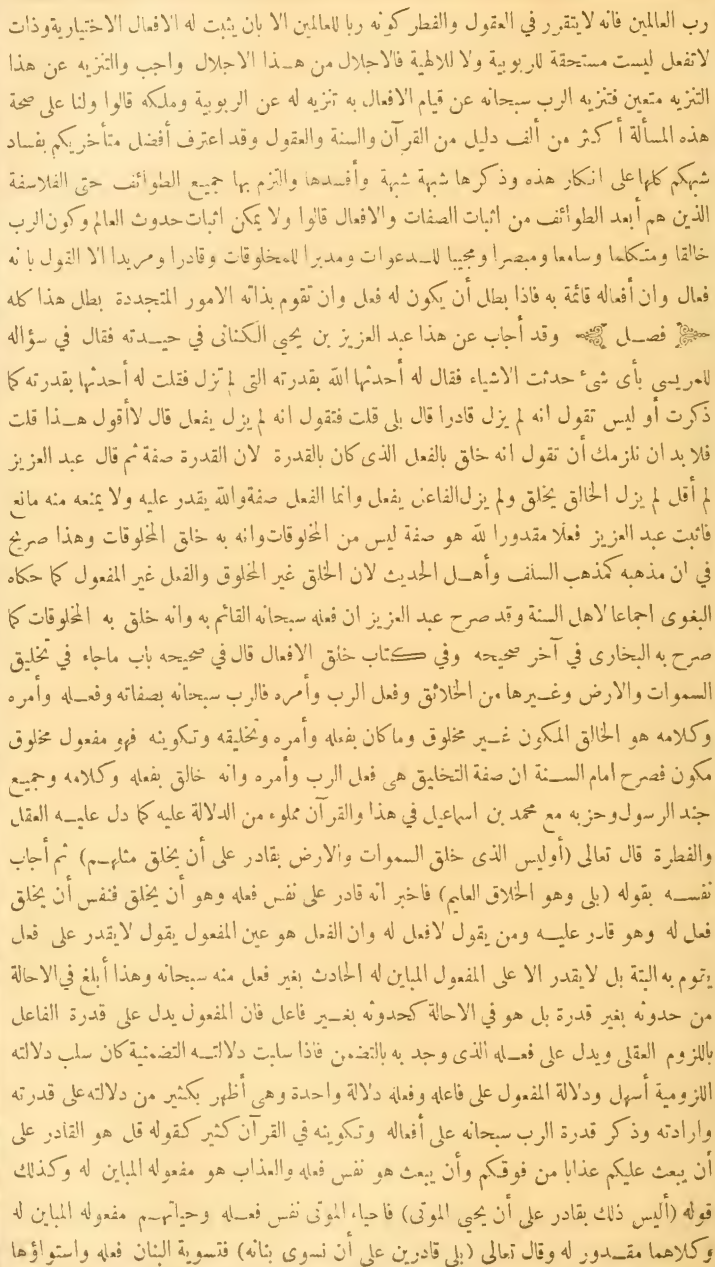 رب العالمين فانه لايتقرر في العقول والفطر كونه ربا للعالمين الا بان يثبت له الافعال الاختيارية وذات
لاتفعل ليست مستحقة للربوبية ولا للالهية فالاجلال من هــذا الاجلال واجب والتنزيه عن هذا
التنزيه متعين فتنزيه الرب سبحانه عن قيام الافعال به تنزيه له عن الربوبية وملكه قالوا ولنا على صحة
هذه المسألة أكثر من ألف دليل من القرآن والسنة والعقول وقد اعترف أفضل متأخريكم بفساد
شبهكم كلها على انكار هذه وذكرها شبهة شبهة وأفسدها والتزم بها جميع الطوائف حتى الفلاسفة
الذين هم أبعد الطوائف من اثبات الصفات والافعال قالوا ولا يمكن اثبات حدوث العالم وكون الرب
خالقا ومتكلما وسامعا ومبصرا ومجيبا للــدعوات ومدبرا للمخلوقات وقادرا ومريدا الا القول بانه
فعال وان أفعاله قائمة به فاذا بطل أن يكون له فعل وان تقوم بذاته الامور المتجددة بطل هذا كله
﴿ فصــل ﴾ وقد أجاب عن هذا عبد العزيز بن يحيى الكناني في حيــدته فقال في سؤاله
للمريسي بأى شئ حدثت الاشياء فقال له أحدثها الله بقدرته التى لم تزل فقلت له أحدثها بقدرته كما
ذكرت أو ليس تقول انه لم يزل قادرا قال بلى قلت فتقول انه لم يزل يفعل قال لاأقول هــذا قلت
فلابد ان نلزمك أن تقول انه خلق بالفعل الذى كان بالقدرة لان القدرة صفة ثم قال عبد العزيز
لم أقل لم يزل الخالق يخلق ولم يزل الفاعل يفعل وانما الفعل صفة والله يقدر عليه ولا يمنعه منه مانع
فاثبت عبد العزيز فعلا مقدورا لله هو صفة ليس من المخلوقات وانه به خلق المخلوقات وهذا صريح
في ان مذهبه كمذهب السلف وأهــل الحديث لان الخلق غير المخلوق والفعل غير المفعول كما حكاه
البغوى اجماعا لاهل السنة وقد صرح عبد العزيز ان فعله سبحانه القائم به وانه خلق به المخلوقات كما
صرح به البخارى في آخر صحيحه وفي كتاب خلق الافعال قال في صحيحه باب ماجاء في تخليق
السموات والارض وغــيرها من الخلائق وفعل الرب وأمره فالرب سبحانه بصفاته وفعــله وأمره
وكلامه هو الخالق المكون غــير مخلوق وماكان بفعله وأمره وتخليقه وتكوينه فهو مفعول مخلوق
مكون فصرح امام الســنة ان صفة التخليق هى فعل الرب وأمره وانه خالق بفعله وكلامه وجميــع
جند الرسول وحزبه مع محمد بن اسماعيل في هذا والقرآن مملوء من الدلالة عليه كما دل عليــه العقل
والفطرة قال تعالى (أوليس الذى خلق السموات والارض بقادر على أن يخلق مثلهــم) ثم أجاب
نفســه بقوله (بلى وهو الخلاق العليم) فاخبر انه قادر على نفس فعله وهو أن يخلق فنفس أن يخلق
فعل له وهو قادر عليــه ومن يقول لافعل له وان الفعل هو عين المفعول يقول لايقدر على فعل
يقوم به البتة بل لايقدر الا على المفعول المباين له الحادث بغير فعل منه سبحانه وهذا أبلغ في الاحالة
من حدوثه بغير قدرة بل هو في الاحالة كحدوثه بغــير فاعل فان المفعول يدل على قدرة الفاعل
باللزوم العقلى ويدل على فعــله الذى وجد به بالتضمن فاذا سلبت دلالتــه التضمنية كان سلب دلالته
اللزومية أسهل ودلالة المفعول على فاعله وفعله دلالة واحدة وهى أظهر بكثير من دلالته على قدرته
وارادته وذكر قدرة الرب سبحانه على أفعاله وتكوينه في القرآن كثير كقوله قل هو القادر على
أن يبعث عليكم عذابا من فوقكم وأن يبعث هو نفس فعله والعذاب هو مفعوله المباين له وكذلك
قوله (أليس ذلك بقادر على أن يحيى الموتى) فاحياء الموتى نفس فعــله وحياتهــم مفعوله المباين له
وكلاهما مقــدور له وقال تعالى (بلى قادرين على أن نسوى بنانه) فتسوية البنان فعله واستواؤها